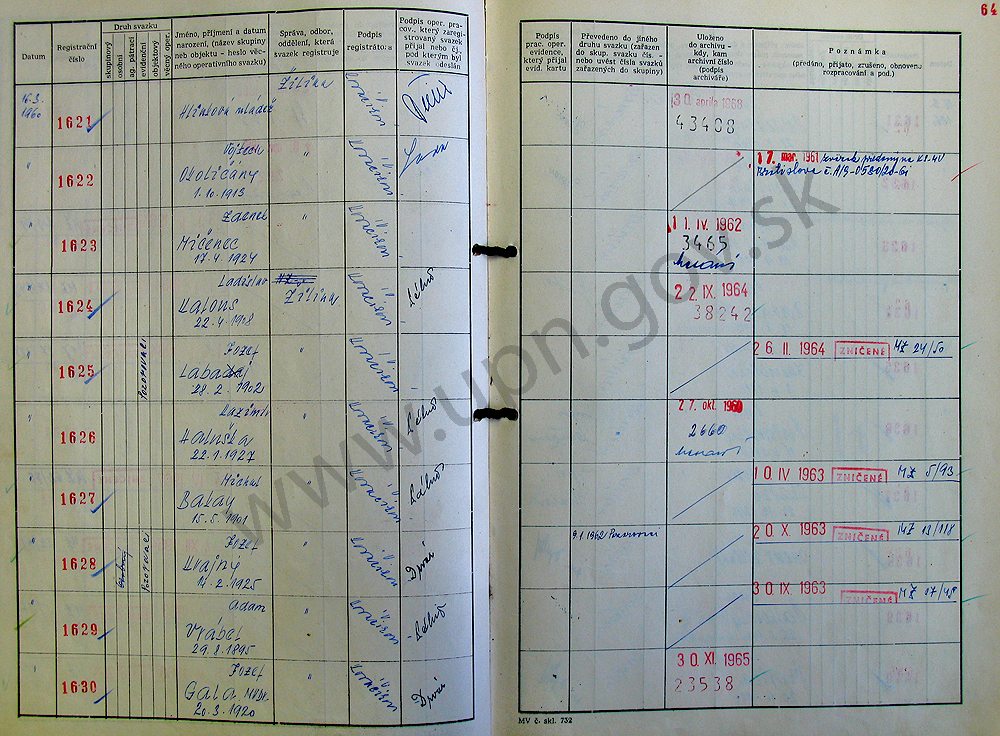 64
Datum
Registrační číslo
Druh svazku
skupinový
osobní
ag. pátrací
evidenční
objektový
věcný oper.
Jméno, příjmení a datum
narození, (název skupiny
neb objektu - heslo věc-
ného operativního svazku)
Správa, odbor,
oddělení, která
svazek registruje
Podpis
registrátora
Podpis oper. pra-
cov., který zaregi-
strovaný svazek
přijal nebo čj.
pod kterým byl
svazek odeslán
Podpis
prac. oper.
evidence,
který přijal
evid. kartu
Převedeno do jiného
druhu svazku (zařazen
do skup. svazku čís. -
nebo uvést čísla svazků
zařazených do skupiny)
Uloženo
do archivu -
kdy, kam
archivní číslo
(podpis
archiváře)
Poznámka
(předáno, přijato, zrušeno, obnoveno
rozpracování a pod.)
16.3.
1960
1621
Hlinková mládež
Žilina
30. aprila 1968
43408
"
1622
Vojtech
Okoličány
1.10.1913
"
17. mar. 1961 zväzok predaný na KS-MV
Bratislava č. A/9-0580/20-61
"
1623
Zdenek
Mičenec
17.4.1924
"
11. IV. 1962
3465
"
1624
Ladislav
Kalous
22.4.1908
Žilina
22. IX. 1964
38242
"
1625
pozorovací
Jozef
28.2.1902
"
26. II. 1964 ZNIČENÉ MZ 24/50
"
1626
Haluška
22.1.1927
"
27. okt. 1960
2660
"
1627
Michal
Balay
15.5.1901
"
10. IV 1963 ZNIČENÉ MZ 5/93
"
1628
pozorovací
Jozef
Krajny
14.2.1925
"
9.1.1962
20. X. 1963 ZNIČENÉ MZ 13/118
"
1629
Adam
Vrábel
29.8.1895
"
30. IX. 1963 ZNIČENÉ MZ 17/48
"
1630
Jozef
Gala MUDr.
20.3.1920
"
30. XI. 1965
23538
MV č. skl. 732
www.upn.gov.sk